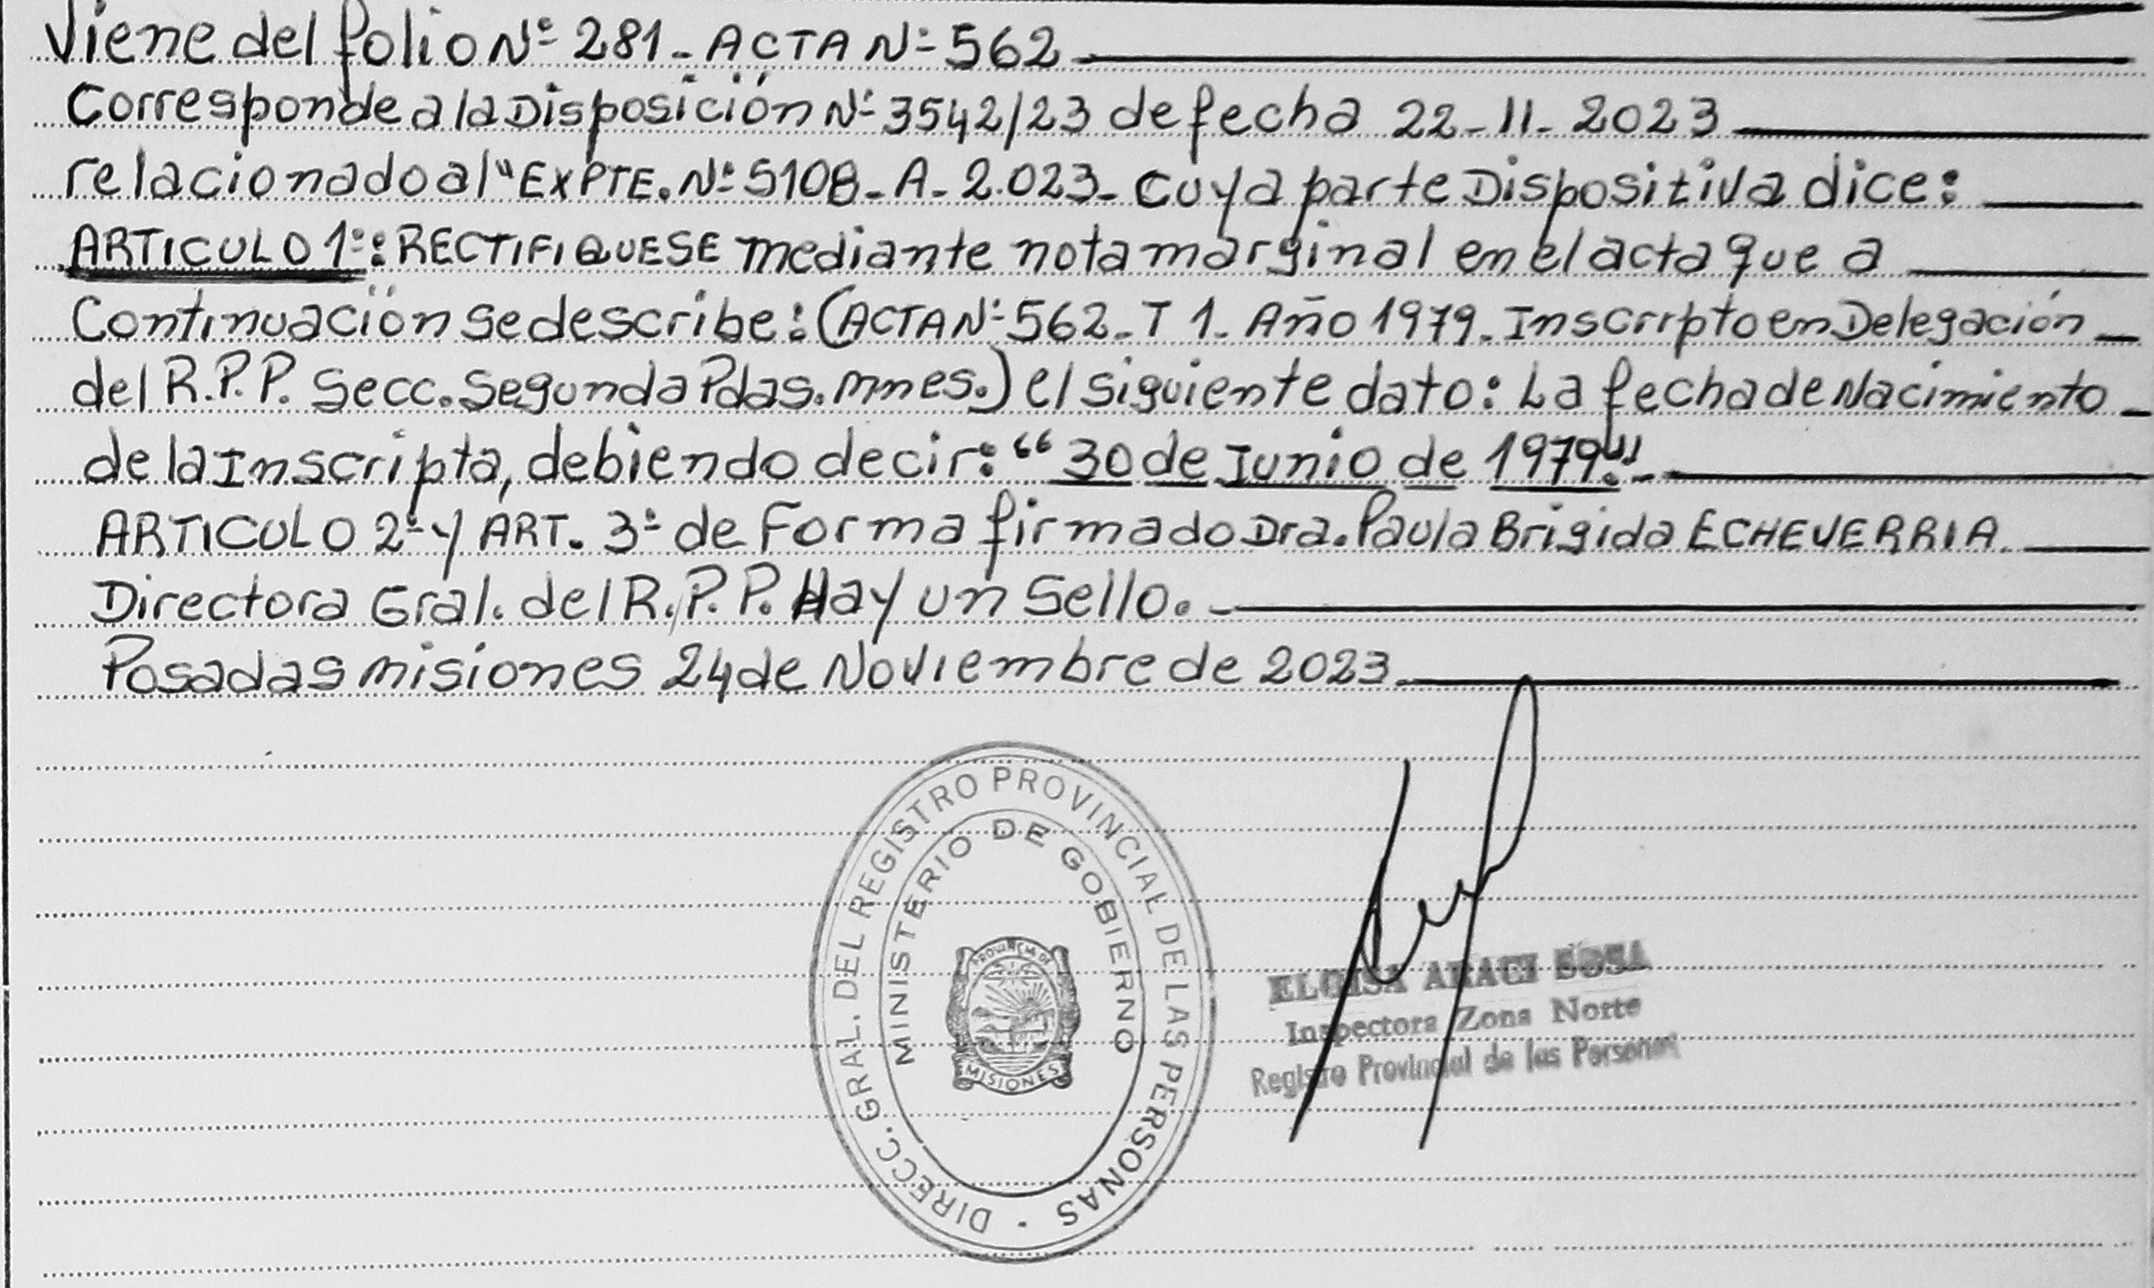 Viene del folio Nº 281 - ACTA Nº 562
Corresponde a la Disposición Nº 3542/23 de fecha 22-11-2023
relacionado al "EXPTE. Nº 5108-A-2.023- Cuya parte Dispositiva dice:
ARTICULO 1º: RECTIFIQUESE mediante nota marginal en el acta que a
Continuación se describe: (ACTA Nº 562-T 1- Año 1979- Inscripto en Delegación
del R.P.P. Secc. Segunda Pdas. Mnes.) el siguiente dato: La fecha de Nacimiento
de la Inscripta, debiendo decir: "30 de Junio de 1979".-
ARTICULO 2º y ART. 3º de Forma firmado Dra. Paula Brigida ECHEVERRIA
Directora Gral. del R.P.P. Hay un Sello.-
Posadas Misiones 24 de Noviembre de 2023
DIRECC. GRAL. DEL REGISTRO PROVINCIAL DE LAS PERSONAS
MINISTERIO DE GOBIERNO
PROVINCIA DE
MISIONES
ELOISA ARACI SOSA
Inspectora Zona Norte
Registro Provincial de las Personas